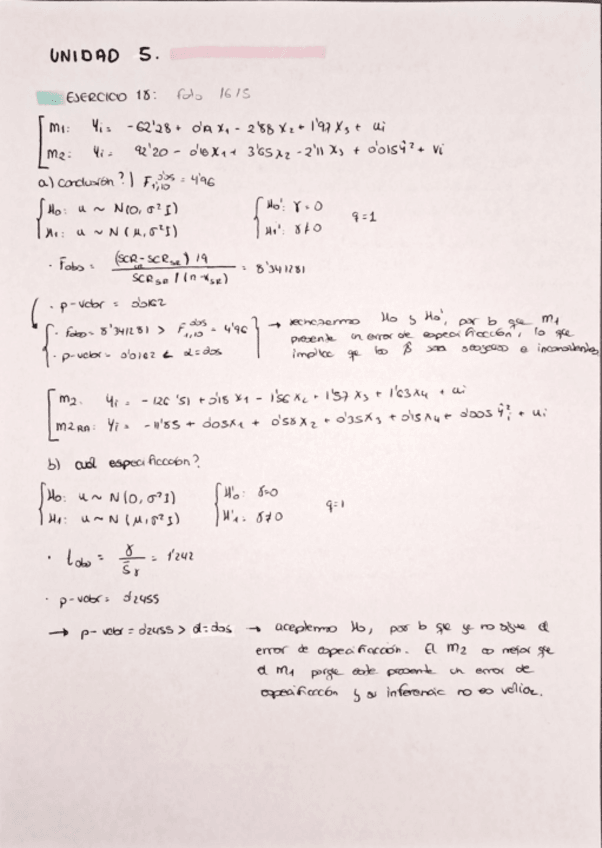 UNIDAD 5.
EJERCICIO 18: Foto 16/5
M1: Yi = -62'28 + 0'19 X1 - 2'88 X2 + 1'97 X3 + ui
M2: Yi = 92'20 - 0'18 X1 + 3'65 X2 - 2'11 X3 + 0'015 ŷ² + Vi
a) Conclusión? | F 0'05 1,10 = 4'96
H0: u ~ N(0, σ²I) H0': γ = 0
H1: u ~ N(μ, σ²I) H1': γ ≠ 0 q = 1
· Fobs = (SCR - SCRSR) / q = 8'341281
SCRSR / (n - KSR)
· p-valor = 0'0162
· Fobs = 8'341281 > F 0'05 1,10 = 4'96 → rechazamos H0 y H0', por lo que M1
presenta un error de especificación, lo que
· p-valor = 0'0162 < α = 0'05 implica que los β̂ sean sesgados e inconsistentes
M2: Yi = -126'51 + 0'18 X1 - 1'56 X2 + 1'57 X3 + 1'63 X4 + ui
M2RA: Yi = -11'85 + 0'05 X1 + 0'58 X2 + 0'35 X3 + 0'15 X4 + 0'005 ŷi² + ui
b) cuál especificación?
H0: u ~ N(0, σ²I) H'0: γ = 0
H1: u ~ N(μ, σ²I) H'1: γ ≠ 0 q = 1
· tobs = γ / Sγ = 1'242
· p-valor = 0'2455
→ p-valor = 0'2455 > α = 0'05 → aceptamos H0, por lo que ya no sigue el
error de especificación. El M2 es mejor que
el M1 porque este presenta un error de
especificación y su inferencia no es válida.